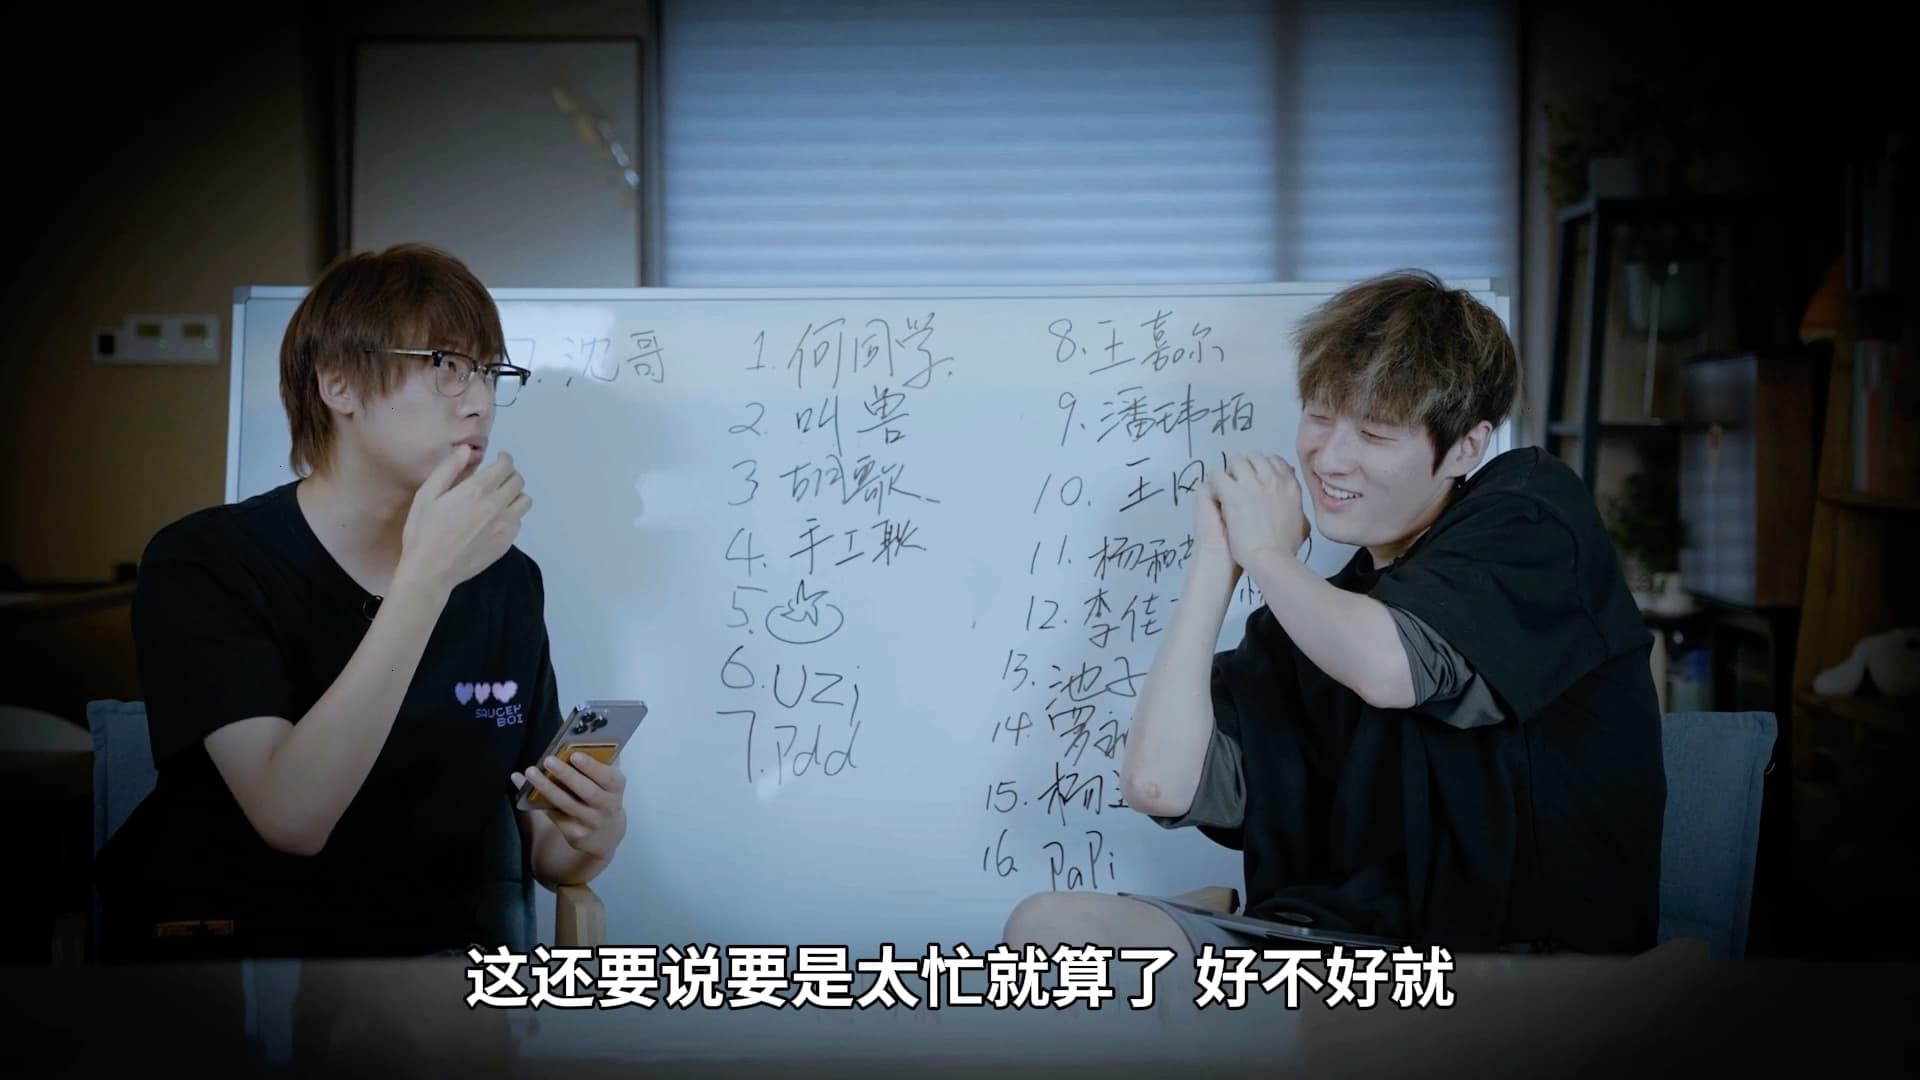 7. 沈哥
1. 何同学.
2. 叫兽
3 胡歌
4. 手工耿
5.
6. Uzi
7. Pdd
8. 王嘉尔
9. 潘玮柏
10. 王
11. 杨和
12. 李佳
13. 池子
14. 罗永
15. 杨
16. PaPi
SAUCEY
BOI
这还要说要是太忙就算了 好不好就